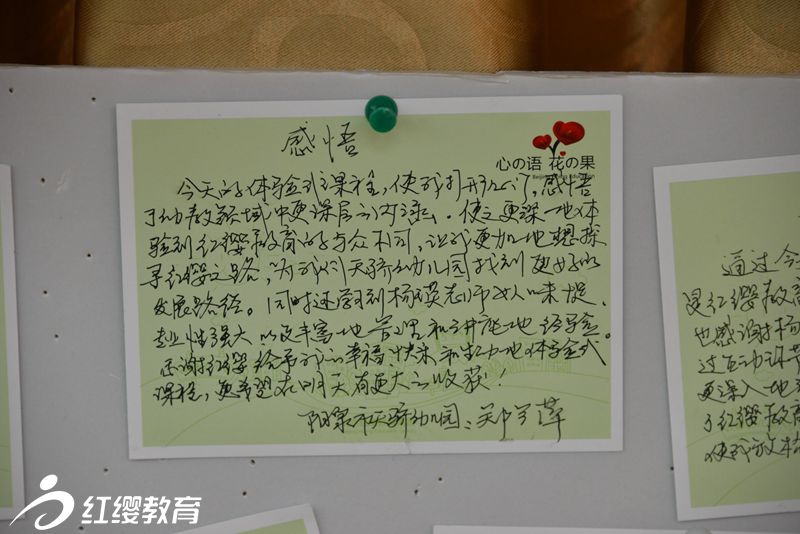 感悟
心の语 花の果
今天的体验式课程,使我打开心门,感悟
了幼教领域中更深层的内涵。使之更深一地体
验到红缨教育的与众不同,让我更加地想探
寻红缨之路,为我们天骄幼儿园找到更好的
发展路径。同时还学到杨瑛老师
专业性强大 以及丰富地 和 地 经验。
感谢红缨给予我的幸福快乐和 地体验式
课程,更希望在明天有更大的收获!
阳泉市天骄幼儿园:郑
通过今
灵红缨教
也感谢杨
过互动环节
更深入地
了红缨教育
使我放
红缨教育